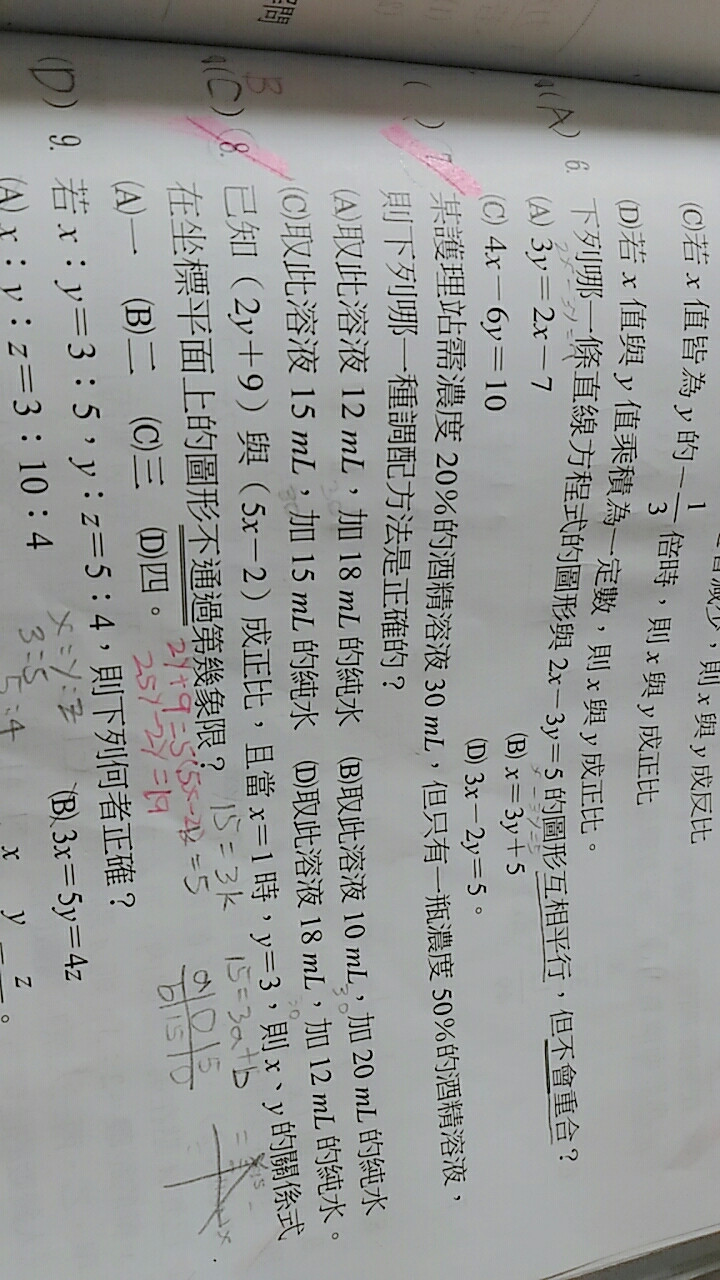 問
值減少,則 x 與 y 成反比
(C)若 x 值皆為 y 的 -1/3 倍時,則 x 與 y 成正比
(D)若 x 值與 y 值乘積為一定數,則 x 與 y 成正比。
(A) 6. 下列哪一條直線方程式的圖形與 2x-3y=5 的圖形互相平行,但不會重合?
(A) 3y=2x-7 (B) x=3y+5
(C) 4x-6y=10 (D) 3x-2y=5。
( ) 7. 某護理站需濃度 20%的酒精溶液 30 mL,但只有一瓶濃度 50%的酒精溶液,
則下列哪一種調配方法是正確的?
(A)取此溶液 12 mL,加 18 mL 的純水 (B)取此溶液 10 mL,加 20 mL 的純水
(C)取此溶液 15 mL,加 15 mL 的純水 (D)取此溶液 18 mL,加 12 mL 的純水。
B
(C) 8. 已知(2y+9)與(5x-2)成正比,且當 x=1 時,y=3,則 x、y 的關係式
在坐標平面上的圖形不通過第幾象限?
15=3k
15=3a+b
(A)一 (B)二 (C)三 (D)四。
2y+9=5(5x-2)
25x-2y=19
(D) 9. 若 x:y=3:5,y:z=5:4,則下列何者正確?
x:y:z
3:5
5:4
(A) x:y:z=3:10:4 (B) 3x=5y=4z
x y z